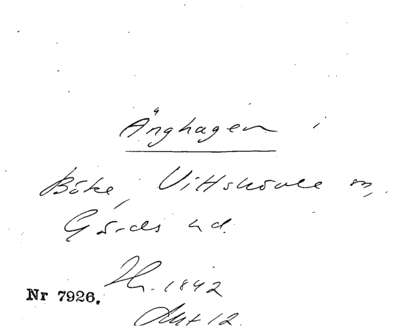 Änghagen i
Böke, Vittskövle sn,
Gärds hd.
Hr. 1842
Nr 7926.
Akt 12.